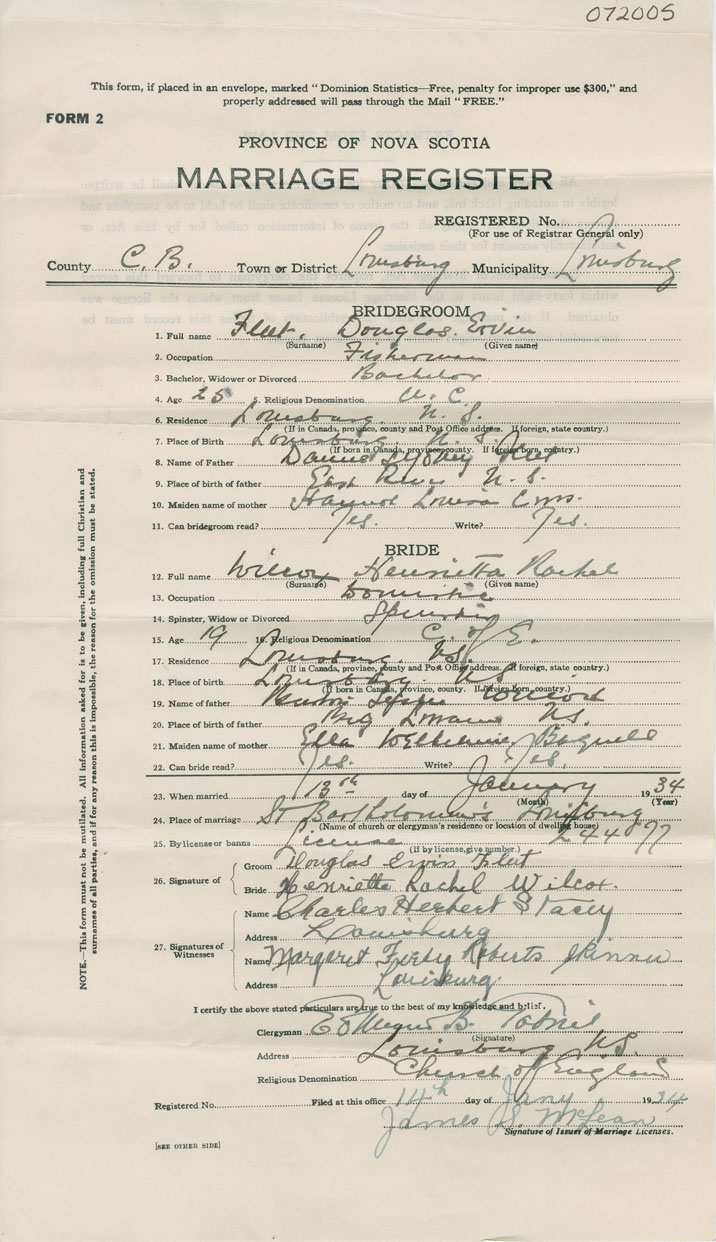 072005
This form, if placed in an envelope, marked "Dominion Statistics—Free, penalty for improper use $300," and
properly addressed will pass through the Mail "FREE."
FORM 2
PROVINCE OF NOVA SCOTIA
MARRIAGE REGISTER
REGISTERED No.
(For use of Registrar General only)
County C. B. Town or District Louisburg Municipality Louisburg
BRIDEGROOM
1. Full name Fleet, Douglas Ervin
(Surname) (Given name)
2. Occupation Fisherman
3. Bachelor, Widower or Divorced Bachelor
4. Age 25 5. Religious Denomination U. C.
6. Residence Louisburg. N. S.
(If in Canada, province, county and Post Office address. If foreign, state country.)
7. Place of Birth Louisburg. N. S.
(If born in Canada, province, county. If foreign born, country.)
8. Name of Father Sydney Fleet
9. Place of birth of father East River N. S.
10. Maiden name of mother Louisa
11. Can bridegroom read? Yes. Write? Yes.
BRIDE
12. Full name Wilcox Henrietta Rachel
(Surname) (Given name)
13. Occupation Domestic
14. Spinster, Widow or Divorced Spinster
15. Age 19 16. Religious Denomination C. of E.
17. Residence Louisburg. N.S.
(If in Canada, province, county and Post Office address. If foreign, state country.)
18. Place of birth Louisburg N.S.
(If born in Canada, province, county. If foreign born, country.)
19. Name of father Wilcox
20. Place of birth of father Big Lorraine N.S.
21. Maiden name of mother Ella Bagnell
22. Can bride read? Yes. Write? Yes.
23. When married 13th day of January 1934
(Month) (Year)
24. Place of marriage St Bartholomew's Louisburg
(Name of church or clergyman's residence or location of dwelling house)
25. By license or banns License 24497
(If by license, give number.)
26. Signature of
Groom Douglas Ervin Fleet
Bride Henrietta Rachel Wilcox.
27. Signatures of Witnesses
Name Charles Herbert Stacey
Address Louisburg
Name Margaret Roberts Skinner
Address Louisburg.
I certify the above stated particulars are true to the best of my knowledge and belief.
Clergyman B.
(Signature)
Address Louisburg N.S.
Religious Denomination Church of England
Registered No. Filed at this office 14th day of Jany 1934
James McLean
Signature of Issuer of Marriage Licenses.
[SEE OTHER SIDE]
NOTE.—This form must not be mutilated. All information asked for is to be given, including full Christian and
surnames of all parties, and if for any reason this is impossible, the reason for the omission must be stated.